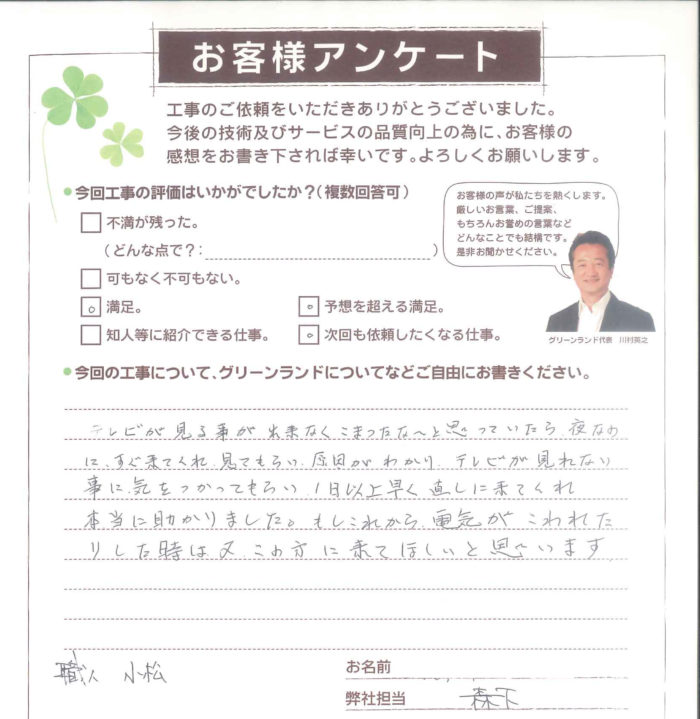 お客様アンケート
工事のご依頼をいただきありがとうございました。
今後の技術及びサービスの品質向上の為に、お客様の
感想をお書き下されば幸いです。よろしくお願いします。
●今回工事の評価はいかがでしたか?(複数回答可)
不満が残った。
(どんな点で?: )
可もなく不可もない。
満足。
予想を超える満足。
知人等に紹介できる仕事。
次回も依頼したくなる仕事。
お客様の声が私たちを熱くします。
厳しいお言葉、ご提案、
もちろんお誉めの言葉など
どんなことでも結構です。
是非お聞かせください。
グリーンランド代表 川村英之
●今回の工事について、グリーンランドについてなどご自由にお書きください。
テレビが見る事が出来なくこまったな〜と思っていたら、夜なの
に、すぐ来てくれ、見てもらい、原因がわかり、テレビが見れない
事に、気をつかってもらい、1日以上早く直しに来てくれ
本当に助かりました。もしこれから、電気がこわれた
りした時は又この方に来てほしいと思います
職人 小松
お名前
弊社担当 森下